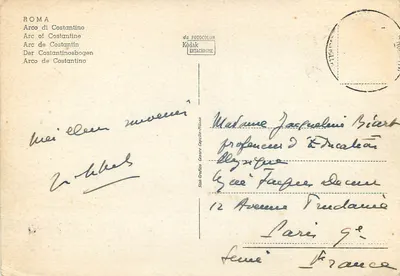 ROMA
Arco di Costantino
Arc of Constantine
Arc de Costantin
Der Costantinosbogen
Arco de Costantino
Kodak
EKTACHROME
Meilleur souvenir
Madame Jacqueline
professeur d'Education
Physique
Lycée Jacques Decour
12 Avenue Trudaine
Paris 9e
Seine France